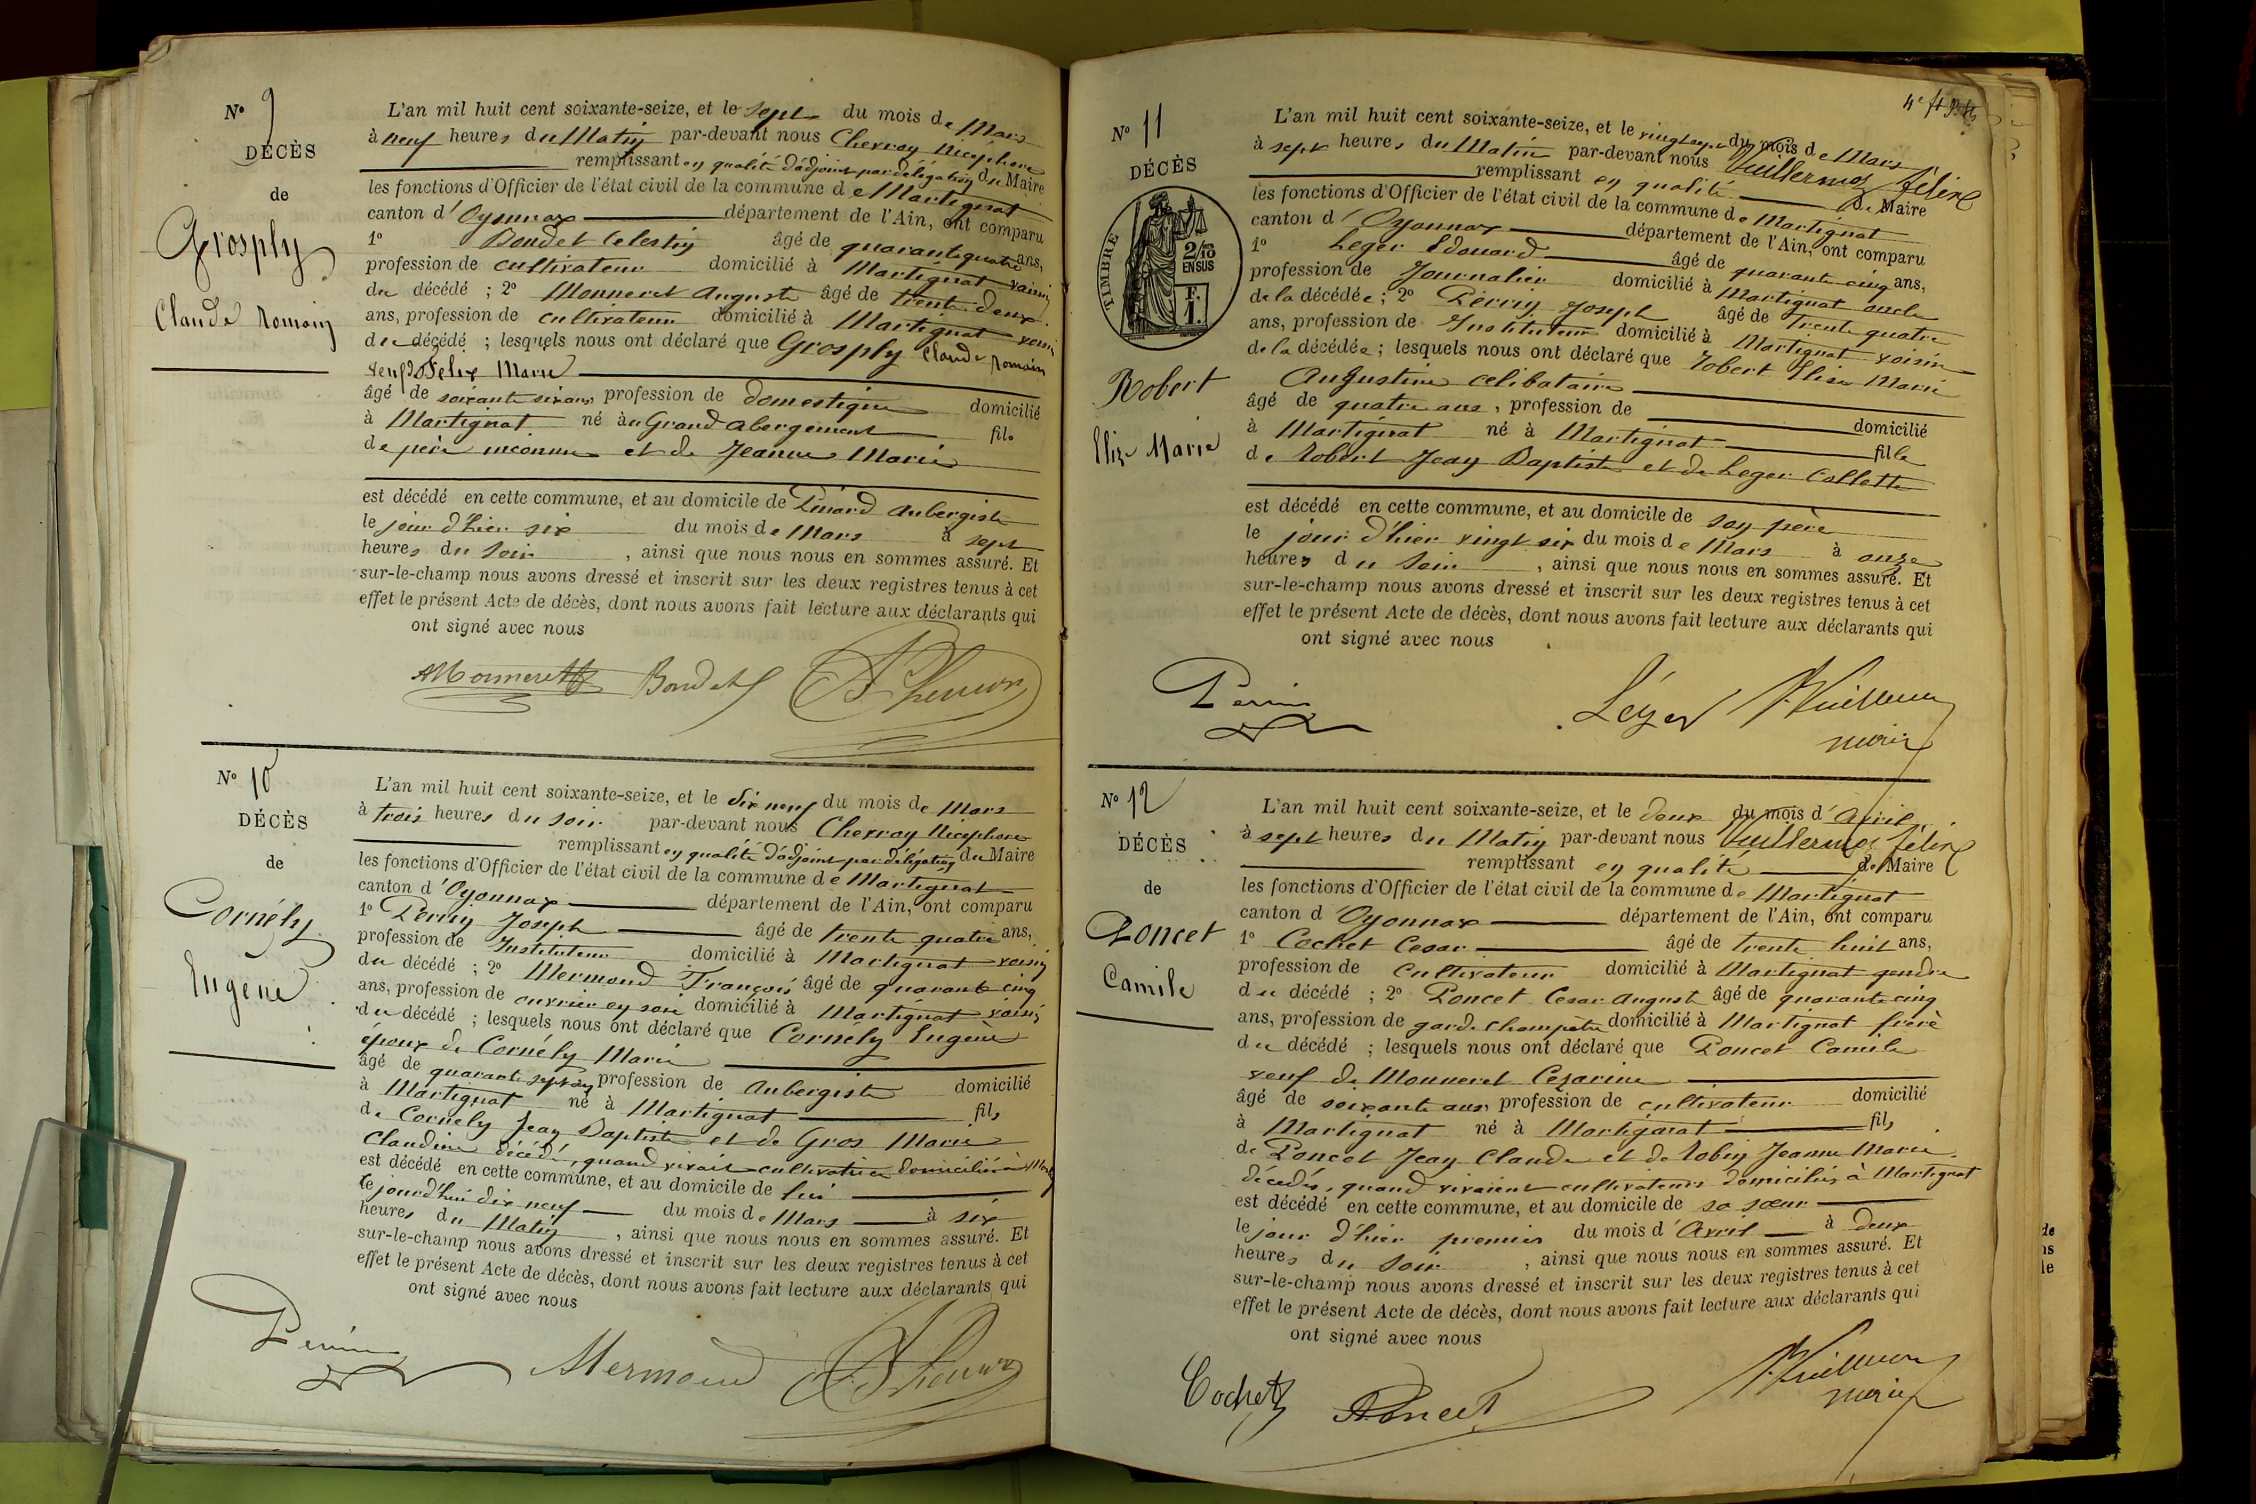 N° 9
DÉCÈS
de
Grosply
Claude Romain
L'an mil huit cent soixante-seize, et le sept du mois de Mars
à neuf heures du Matin par-devant nous Chevron Nicéphore
remplissant en qualité d'adjoint par délégation du Maire
les fonctions d'Officier de l'état civil de la commune de Martignat
canton d'Oyonnax département de l'Ain, ont comparu
1° Bondet Celestin âgé de quarante quatre ans,
profession de cultivateur domicilié à Martignat voisin
du décédé ; 2° Monneret Auguste âgé de trente deux
ans, profession de cultivateur domicilié à Martignat voisin
du décédé ; lesquels nous ont déclaré que Grosply Claude Romain
veuf d Felix Marie
âgé de soixante six ans profession de domestique domicilié
à Martignat né au Grand abergement fils
de père inconnu et de Jeanne Marie
est décédé en cette commune, et au domicile de Pinard Aubergiste
le jour d'hier six du mois de Mars à sept
heures du Soir, ainsi que nous nous en sommes assuré. Et
sur-le-champ nous avons dressé et inscrit sur les deux registres tenus à cet
effet le présent Acte de décès, dont nous avons fait lecture aux déclarants qui
ont signé avec nous
AMonneret Bondet
N° 10
DÉCÈS
de
Cornély
Eugène
L'an mil huit cent soixante-seize, et le dix neuf du mois de Mars
à trois heures du soir par-devant nous Chevron Nicephore
remplissant en qualité d'adjoint par délégation du Maire
les fonctions d'Officier de l'état civil de la commune de Martignat
canton d'Oyonnax département de l'Ain, ont comparu
1° Perrin Joseph âgé de trente quatre ans,
profession de Instituteur domicilié à Martignat voisin
du décédé ; 2° Mermond François âgé de quarante cinq
ans, profession de ouvrier en soie domicilié à Martignat voisin
du décédé ; lesquels nous ont déclaré que Cornély Eugène
époux de Cornély Marie
âgé de quarante sept ans profession de Aubergiste domicilié
à Martignat né à Martignat fils
de Cornely Jean Baptiste et de Gros Marie
Claudine décédé, quand vivait cultivatrice domiciliée à Mart
est décédé en cette commune, et au domicile de lui
le jourd'hui dix neuf du mois de Mars à six
heures du Matin, ainsi que nous nous en sommes assuré. Et
sur-le-champ nous avons dressé et inscrit sur les deux registres tenus à cet
effet le présent Acte de décès, dont nous avons fait lecture aux déclarants qui
ont signé avec nous
Perrin Mermond
4e ft
N° 11
DÉCÈS
TIMBRE
2/10
EN SUS
F.
1.
Robert
Elise Marie
L'an mil huit cent soixante-seize, et le vingt sept du mois de Mars
à sept heures du Matin par-devant nous Vuillermoz félix
remplissant en qualité de Maire
les fonctions d'Officier de l'état civil de la commune de Martignat
canton d'Oyonnax département de l'Ain, ont comparu
1° Leger Edouard âgé de quarante cinq ans,
profession de Journalier domicilié à Martignat oncle
de la décédée ; 2° Perrin Joseph âgé de trente quatre
ans, profession de Instituteur domicilié à Martignat voisin
de la décédée ; lesquels nous ont déclaré que Robert Elise Marie
Augustine celibataire
âgé de quatre ans, profession de domicilié
à Martignat né à Martignat fille
de Robert Jean Baptiste et de Leger Collette
est décédé en cette commune, et au domicile de son père
le jour d'hier vingt six du mois de Mars à onze
heures du Soir, ainsi que nous nous en sommes assuré. Et
sur-le-champ nous avons dressé et inscrit sur les deux registres tenus à cet
effet le présent Acte de décès, dont nous avons fait lecture aux déclarants qui
ont signé avec nous
Perrin Léger
maire
N° 12
DÉCÈS
de
Poncet
Camile
L'an mil huit cent soixante-seize, et le deux du mois d'Avril
à sept heures du Matin par-devant nous Vuillermoz félix
remplissant en qualité de Maire
les fonctions d'Officier de l'état civil de la commune de Martignat
canton d'Oyonnax département de l'Ain, ont comparu
1° Cochet Cesar âgé de trente huit ans,
profession de Cultivateur domicilié à Martignat gendre
du décédé ; 2° Poncet Cesar August âgé de quarante cinq
ans, profession de garde champêtre domicilié à Martignat frère
du décédé ; lesquels nous ont déclaré que Poncet Camile
veuf de Monneret Cezarine
âgé de soixante ans, profession de cultivateur domicilié
à Martignat né à Martignat fils
de Poncet Jean Claude et de Robin Jeanne Marie
décédés, quand vivaient cultivateurs domiciliés à Martignat
est décédé en cette commune, et au domicile de sa sœur
le jour d'hier premier du mois d'Avril à deux
heures du Soir, ainsi que nous nous en sommes assuré. Et
sur-le-champ nous avons dressé et inscrit sur les deux registres tenus à cet
effet le présent Acte de décès, dont nous avons fait lecture aux déclarants qui
ont signé avec nous
Cochet Poncet
maire